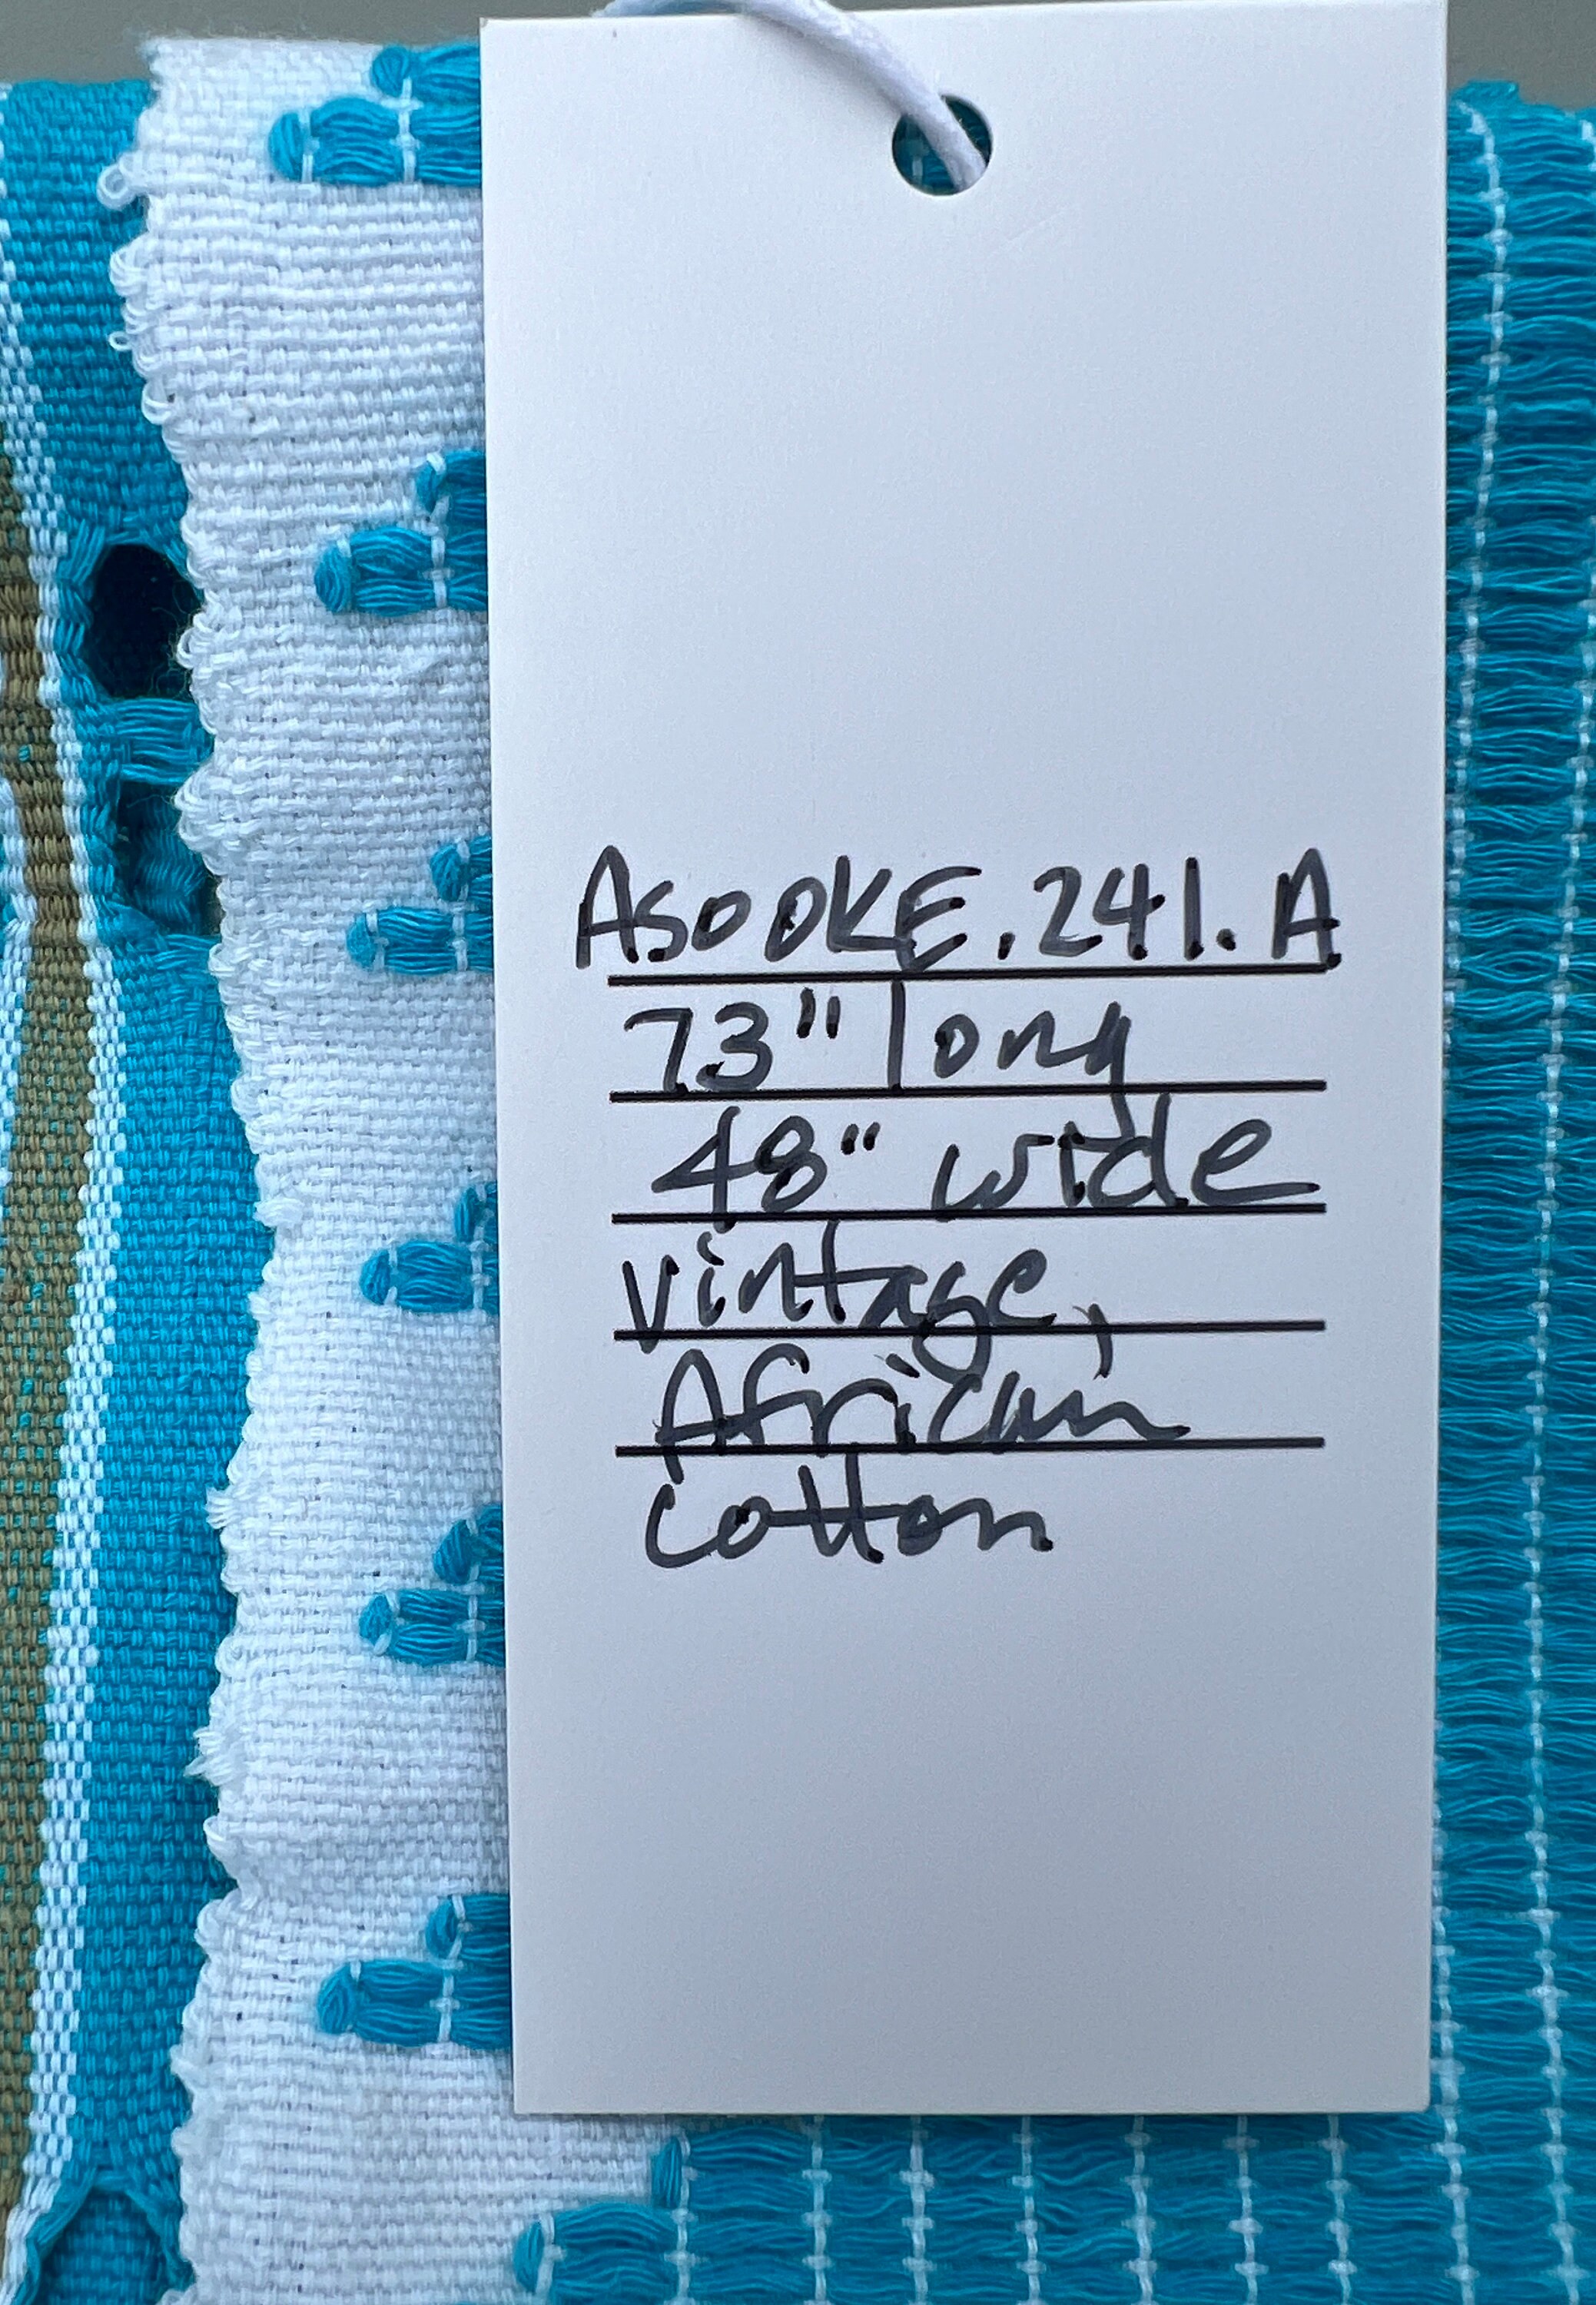 ASOOKE.241.A
73" long
48" wide
vintage,
African
cotton